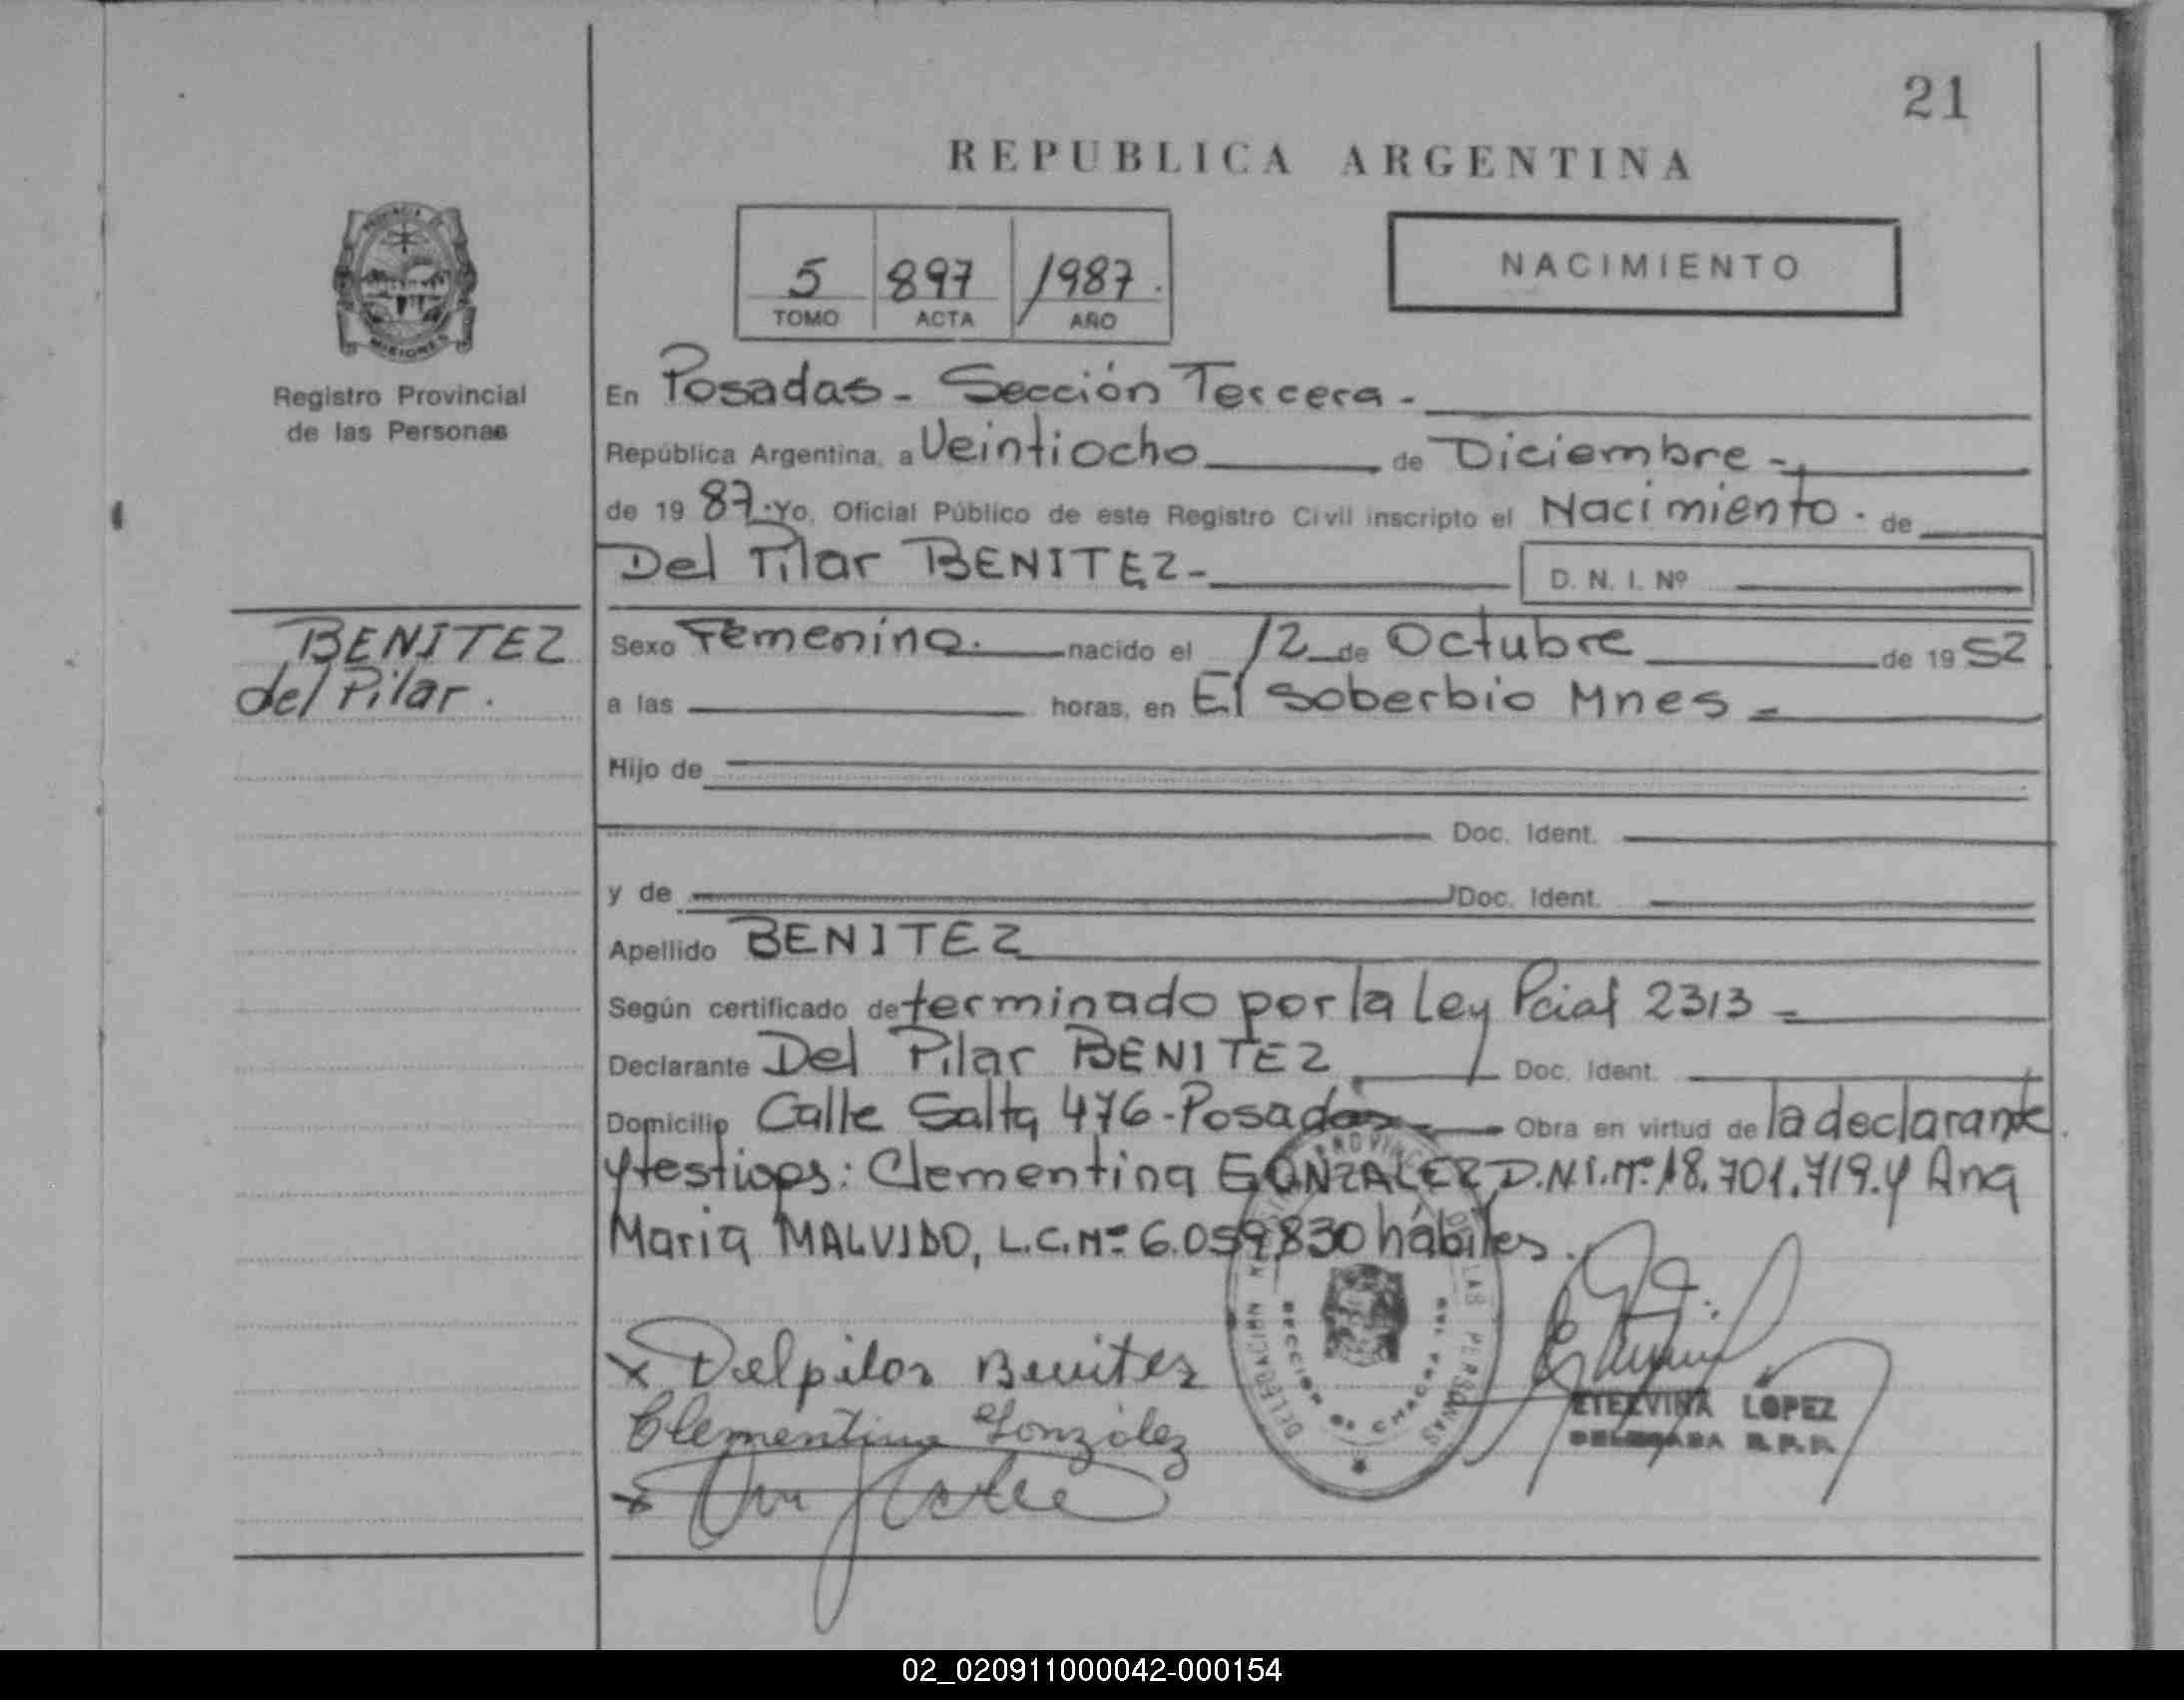 21
REPUBLICA ARGENTINA
5 897 1987.
TOMO ACTA AÑO
NACIMIENTO
MISIONES
Registro Provincial
de las Personas
BENITEZ
del Pilar.
En Posadas - Sección Tercera -
República Argentina, a Veintiocho de Diciembre -
de 19 87. Yo, Oficial Público de este Registro Civil inscripto el Nacimiento. de
Del Pilar BENITEZ - D. N. I. Nº
Sexo Femenino. nacido el 12 de Octubre de 19 52
a las horas, en El Soberbio Mnes -
Hijo de
Doc. Ident.
y de Doc. Ident.
Apellido BENITEZ
Según certificado determinado por la Ley Pcial 2313 -
Declarante Del Pilar BENITEZ Doc. Ident.
Domicilio Calle Salta 476 - Posadas Obra en virtud de la declarante
y testigos: Clementina GONZALEZ D.N.I. Nº 18.701.719. y Ana
Maria MALVIDO, L.C. Nº 6.059830 hábiles.
x Delpilar Benitez
Clementina González
x
ETELVINA LOPEZ
DELEGADA R.P.P.
02_020911000042-000154